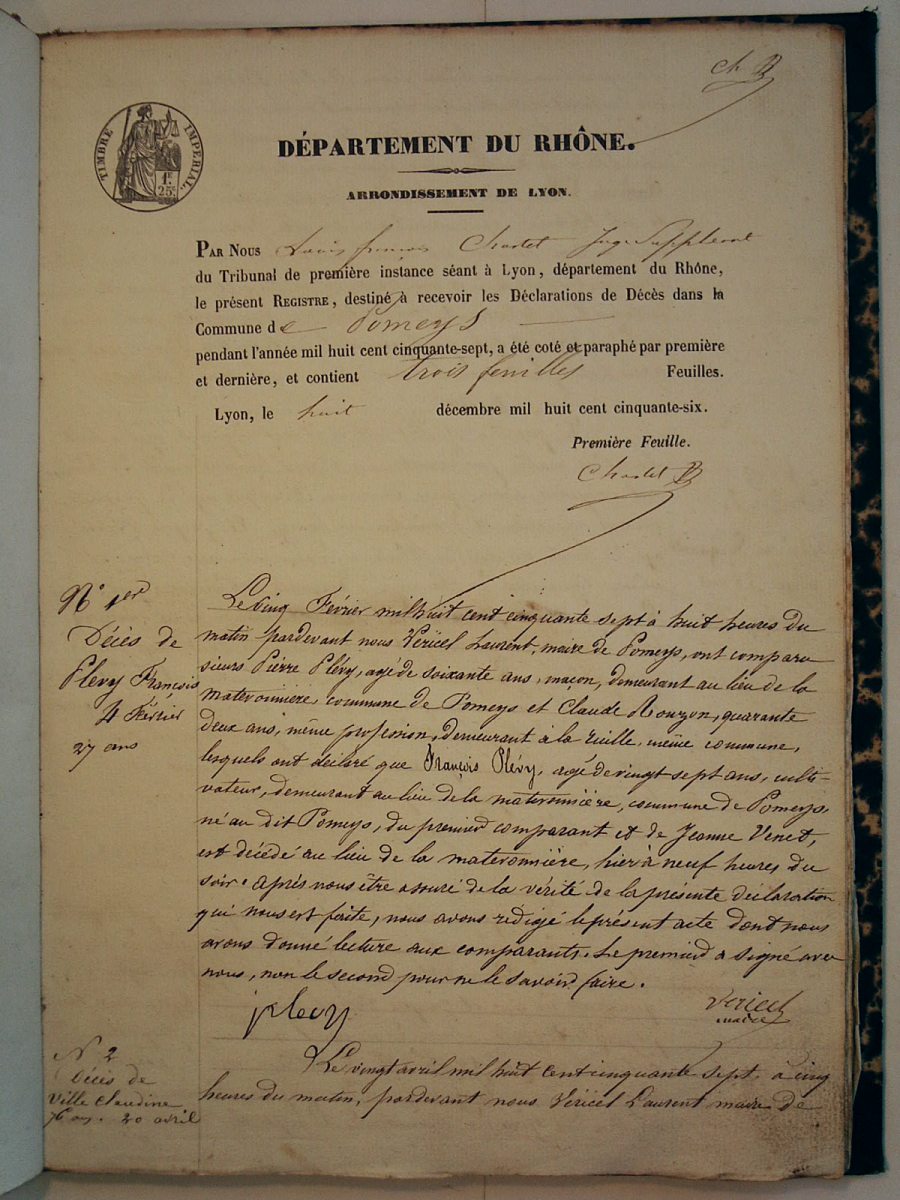 TIMBRE IMPERIAL.
1F.
25C.
DÉPARTEMENT DU RHÔNE.
ARRONDISSEMENT DE LYON.
PAR NOUS Louis françois Chastet Juge Suppléant
du Tribunal de première instance séant à Lyon, département du Rhône,
le présent REGISTRE, destiné à recevoir les Déclarations de Décès dans la
Commune de Pomeys
pendant l'année mil huit cent cinquante-sept, a été coté et paraphé par première
et dernière, et contient trois feuilles Feuilles.
Lyon, le huit décembre mil huit cent cinquante-six.
Première Feuille.
Chastet
N° 1er
Décès de
Plévy François
4 Février
27 ans
Le cinq Février mil huit cent cinquante sept à huit heures du
matin pardevant nous Véricel Laurent, maire de Pomeys, ont comparu
sieurs Pierre Plévy, agé de soixante ans, maçon, demeurant au lieu de la
materonnière, commune de Pomeys et Claude Rouzon, quarante
deux ans, même profession, demeurant à la même commune,
lesquels ont déclaré que François Plévy, agé de vingt sept ans, culti-
vateur, demeurant au lieu de la materonnière, commune de Pomeys,
né au dit Pomeys, du premier comparant et de Jeanne Venet,
est décédé au lieu de la materonnière, hier à neuf heures du
soir. Après nous être assuré de la vérité de la présente déclaration
qui nous est faite, nous avons redigé le présent acte dont nous
avons donné lecture aux comparants. Le premier a signé avec
nous, non le second pour ne le savoir faire.
plevy
Vericel
maire
N° 2
Décès de
Ville Claudine
20 avril
Le vingt avril mil huit cent cinquante sept, à cinq
heures du matin, pardevant nous Véricel Laurent maire de